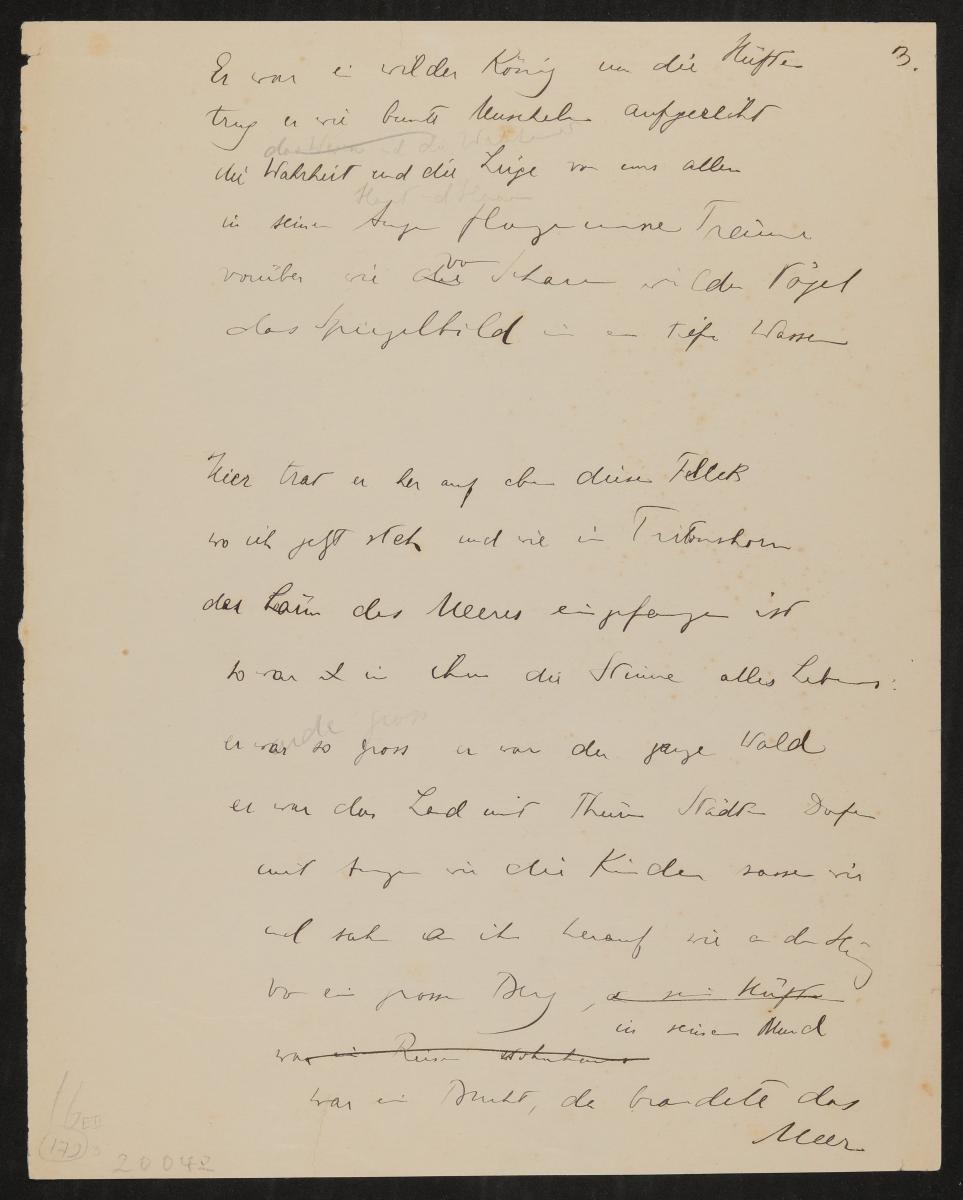 3.
Er war ein wilder König um die Hüften
trug er wie bunte Muscheln aufgereiht
die Wahrheit und die Lüge von uns allen
in seinen Augen flogen unsre Träume
vorüber wie von Scharen wilder Vögel
das Spiegelbild in einem tiefen Wasser
Hier trat er her auf eben diesen Fleck
wo ich jetzt steh und wie im Tritonshorn
der Lärm des Meeres eingefangen ist
so war in ihm die Stimme alles Lebens:
wurde gross
er war so gross er war der ganze Wald
er war das Land mit Thürmen Städten Dorfen
mit Augen wie die Kinder sassen wir
und sahn an ihm herauf wie an den Hängen
von ein grossen Berg, an sein Hüften
in seinem Mund
war ein Riesen
war ein Bucht, da brandete das
Meer
(172)
20042